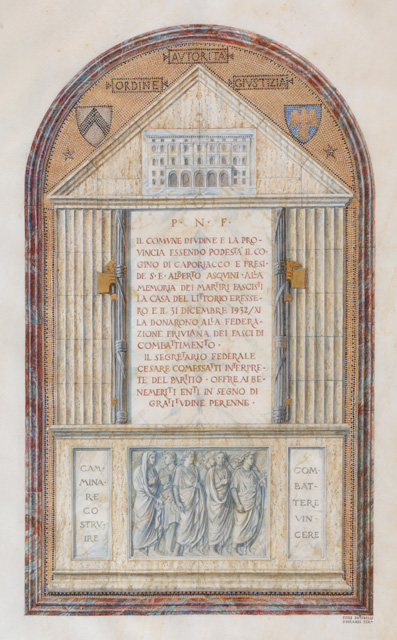 AVTORITÀ
ORDINE
GIVSTIZIA
P · N · F ·
IL COMVNE DI VDINE E LA PRO-
VINCIA ESSENDO PODESTÀ IL CO.
GINO DI CAPORIACCO E PRESI-
DE S· E· ALBERTO ASQVINI · ALLA
MEMORIA DEI MARTIRI FASCISTI
LA CASA DEL LITTORIO ERESSE-
RO E IL 31 DICEMBRE 1932/XI
LA DONARONO ALLA FEDERA-
ZIONE FRIVLANA DEI FASCI DI
COMBATTIMENTO ·
IL SEGRETARIO FEDERALE
CESARE COMESSATTI INTERPRE-
TE DEL PARTITO · OFFRE AI BE-
NEMERITI ENTI IN SEGNO DI
GRATITVDINE PERENNE ·
CAM-
MINA-
RE CO
STRV-
IRE
COM-
BAT-
TERE
VIN-
CERE